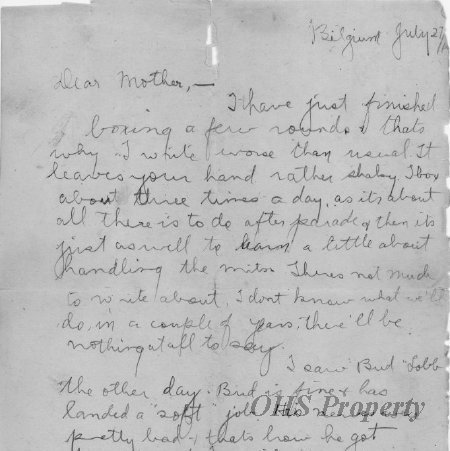 Belgium July 27/
Dear Mother,—
I have just finished
boxing a few rounds & thats
why I write worse than usual. It
leaves your hand rather shaky. I box
about three times a day, as its about
all there is to do after parade & then its
just as well to learn a little about
handling the mits. Theres not much
to write about, I dont know what we'll
do, in a couple of years, there'll be
nothing at all to say.
I saw Bud
the other day. Bud is fine & has
landed a "soft" job.
pretty bad & thats how he got
OHS Property